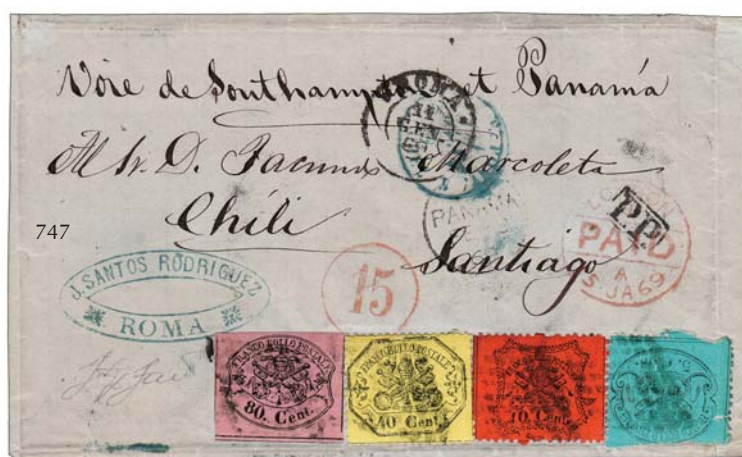 Voie de Southampton et Panamá
ROMA
11
GEN
69
Al Sr. D. Facundo Marcoleta
PANAMA
Chili
747
P.P.
LONDON
PAID
A
5 JA 69
Santiago
J. SANTOS RODRIGUEZ
ROMA
15
FRANCO BOLLO POSTALE
80. Cent.
FRANCO BOLLO POSTALE
40 Cent.
10 Cent.